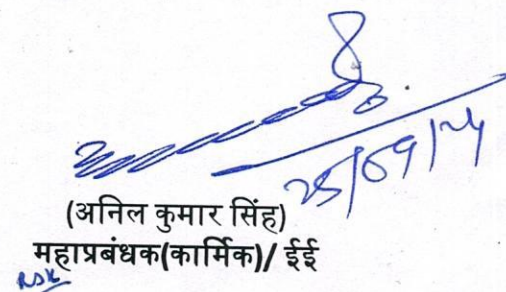 25/09/24
(अनिल कुमार सिंह)
महाप्रबंधक(कार्मिक)/ ईई